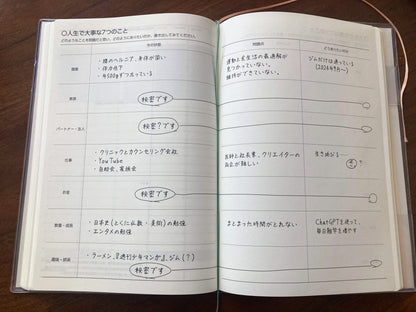 〇人生で大事な7つのこと
どのようなことを問題だと思い、どのようにありたいのか、書き出してみてください。
今の状態
問題点
どうありたいか
健康
・腰のヘルニア、身体が重い
・体力低下
・4500gずつ太っている
運動と食生活の最適解が
見つかっていない。
維持ができていない。
ジムだけは通っている
(2024年9月〜)
家族
秘密です
パートナー・恋人
秘密です
仕事
・クリニックとカウンセリング会社
・YouTube
・自助会、家族会
医師と社長業、クリエイターの
両立が難しい
お金
秘密です
教養・成長
・日本史(とくに仏教・美術)の勉強
・エンタメの勉強
まとまった時間がとれない
ChatGPTを使って、
毎日雑学を増やす
趣味・娯楽
・ラーメン、『週刊少年マンガ』、ジム(?)
秘密です